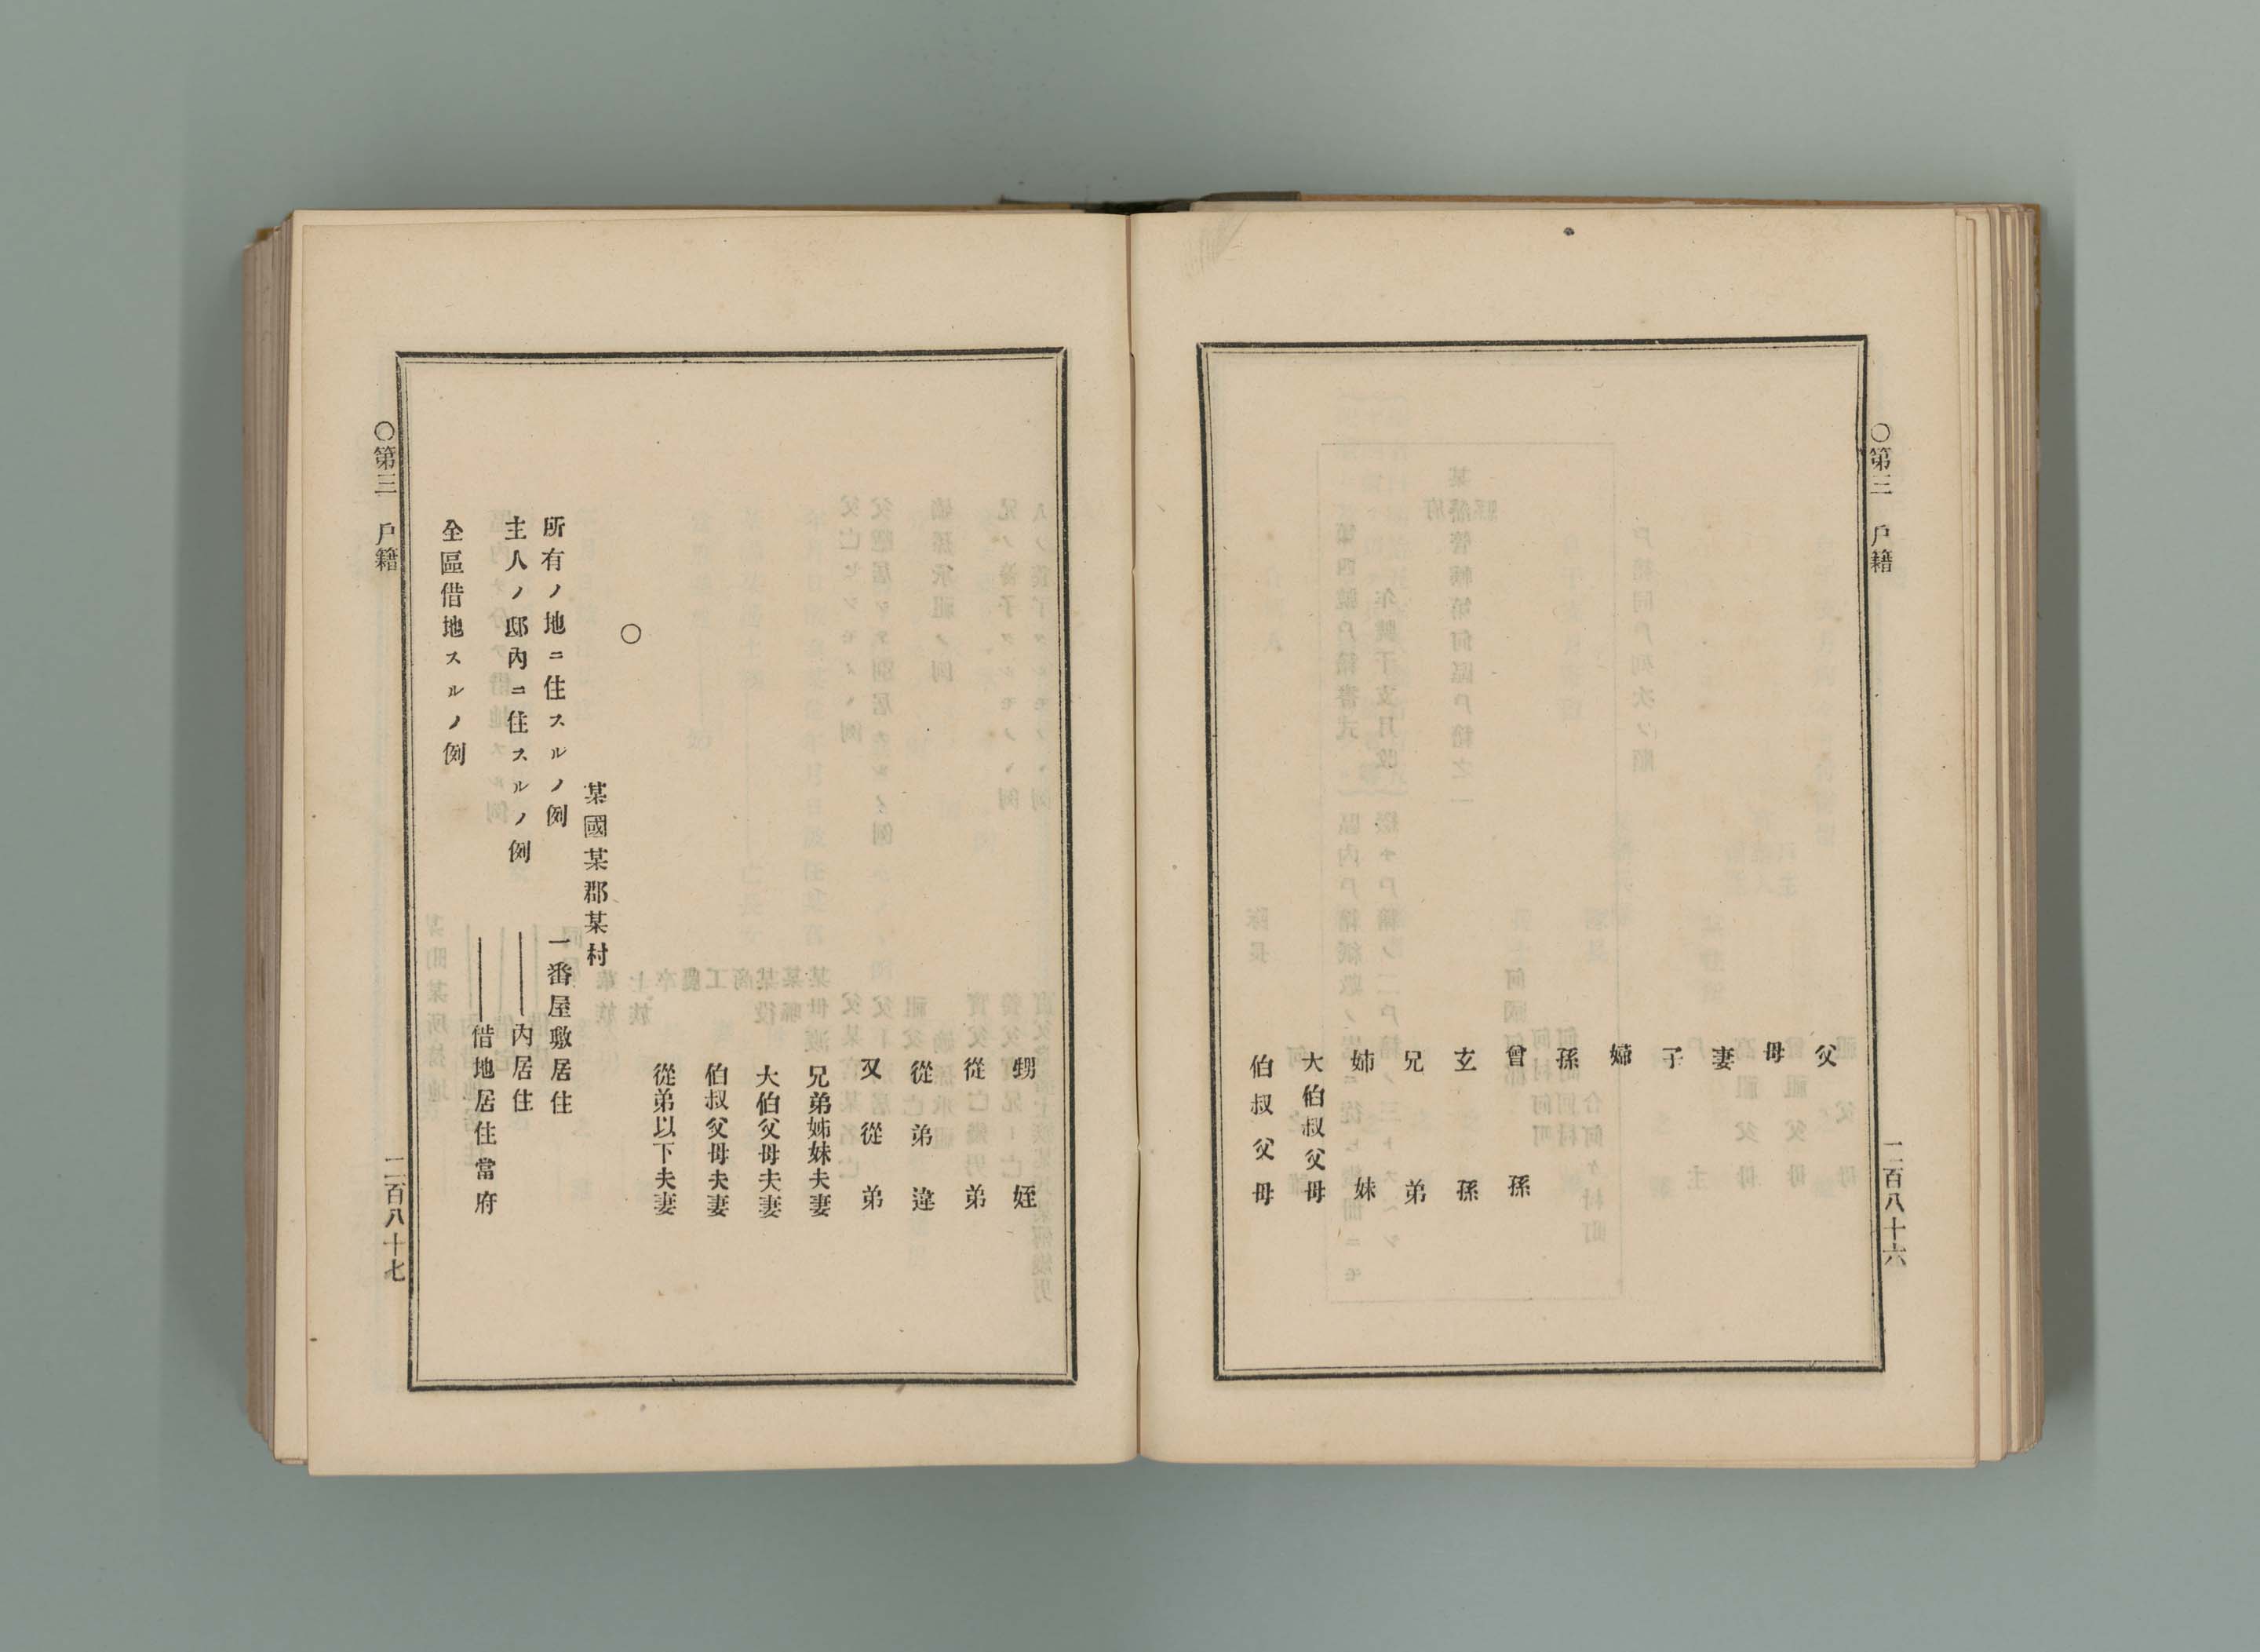 〇第三 戸籍 二百八十六
父
母
妻
子
婦
孫
曾孫
玄孫
兄弟
姉妹
大伯叔父母
伯叔父母
甥姪
從弟
從弟違
又從弟
兄弟姊妹夫妻
大伯父母夫妻
伯叔父母夫妻
從弟以下夫妻
〇
某國某郡某村
所有ノ地ニ住スルノ例 一番屋敷居住
主人ノ邸內ニ住スルノ例 ――內居住
全區借地スルノ例 ――借地居住當府
〇第三 戸籍 二百八十七